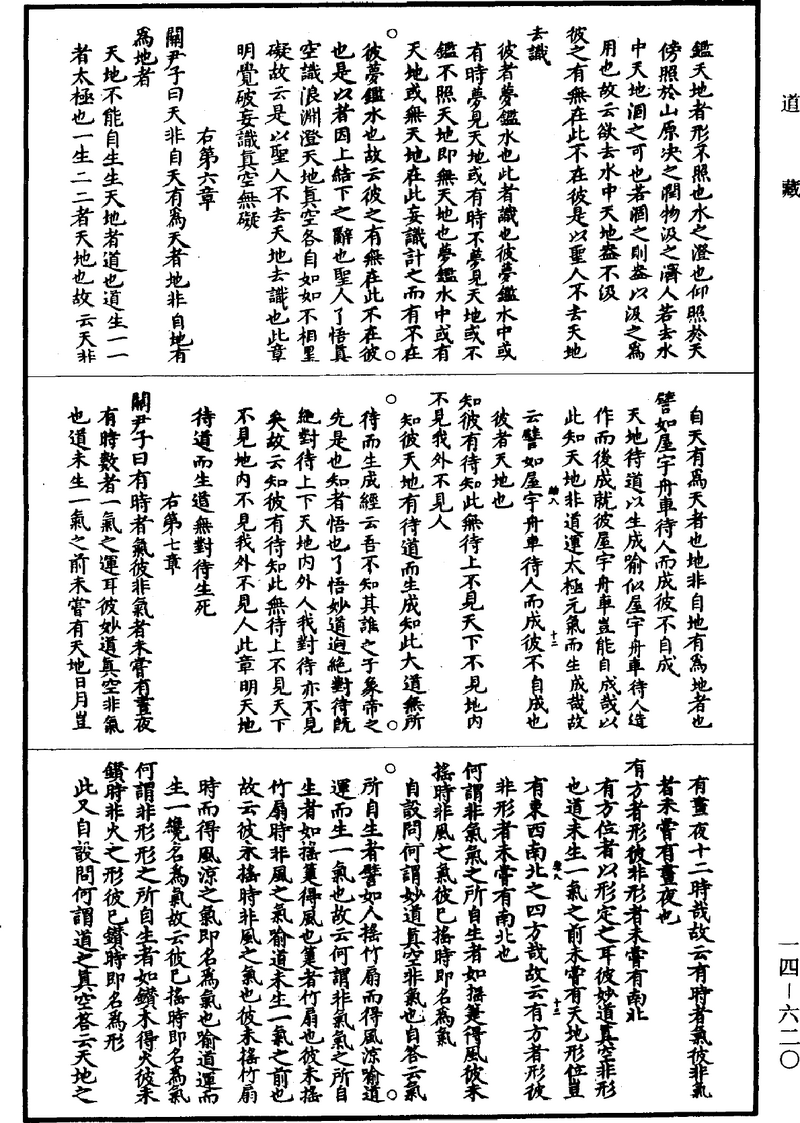 道藏
鑑天地者形不照也水之澄也仰照於天
傍照於山原決之潤物汲之濟人若去水
中天地涸之可也若涸之則盎以汲之爲
用也故云欲去水中天地盎不汲
彼之有無在此不在彼是以聖人不去天地
去識
彼者夢鑑水也此者識也彼夢鑑水中或
有時夢見天地或有時不夢見天地或不
鑑不照天地即無天地也夢鑑水中或有
天地或無天地在此妄識計之而有不在
彼夢鑑水也故云彼之有無在此不在彼
也是以者因上結下之辭也聖人了悟真
空識浪淵澄天地真空各自如如不相罣
礙故云是以聖人不去天地去識也此章
明覺破妄識真空無礙
右第六章
關尹子曰天非自天有爲天者地非自地有
爲地者
天地不能自生生天地者道也道生一一
者太極也一生二二者天地也故云天非
自天有爲天者也地非自地有爲地者也
譬如屋宇舟車待人而成彼不自成
天地待道以生成喻似屋宇舟車待人造
作而後成就彼屋宇舟車豈能自成哉以
此知天地非道運太極元氣而生成哉故
云譬如屋宇舟車待人而成彼不自成也
彼者天地也
知彼有待知此無待上不見天下不見地内
不見我外不見人
知彼天地有待道而生成知此大道無所
待而生成經云吾不知其誰之子象帝之
先是也知者悟也了悟妙道逈絶對待既
絶對待上下天地内外人我對待亦不見
矣故云知彼有待知此無待上不見天下
不見地内不見我外不見人此章明天地
待道而生道無對待生死
右第七章
關尹子曰有時者氣彼非氣者未嘗有晝夜
有時數者一氣之運耳彼妙道真空非氣
也道未生一氣之前未嘗有天地日月豈
有晝夜十二時哉故云有時者氣彼非氣
者未嘗有晝夜也
有方者形彼非形者未嘗有南北
有方位者以形定之耳彼妙道真空非形
也道未生一氣之前未嘗有天地形位豈
有東西南北之四方哉故云有方者形彼
非形者未嘗有南北也
何謂非氣氣之所自生者如搖箑得風彼未
搖時非風之氣彼已搖時即名爲氣
自設問何謂妙道真空非氣也自答云氣
所自生者譬如人搖竹扇而得風涼喻道
運而生一氣也故云何謂非氣氣之所自
生者如搖箑得風也箑者竹扇也彼未搖
竹扇時非風之氣喻道未生一氣之前也
故云彼未搖時非風之氣也彼未搖竹扇
時而得風涼之氣即名爲氣也喻道運而
生一纔名爲氣故云彼已搖時即名爲氣
何謂非形形之所自生者如鑽木得火彼未
鑽時非火之形彼已鑽時即名爲形
此又自設問何謂道之真空答云天地之
一四－六二〇